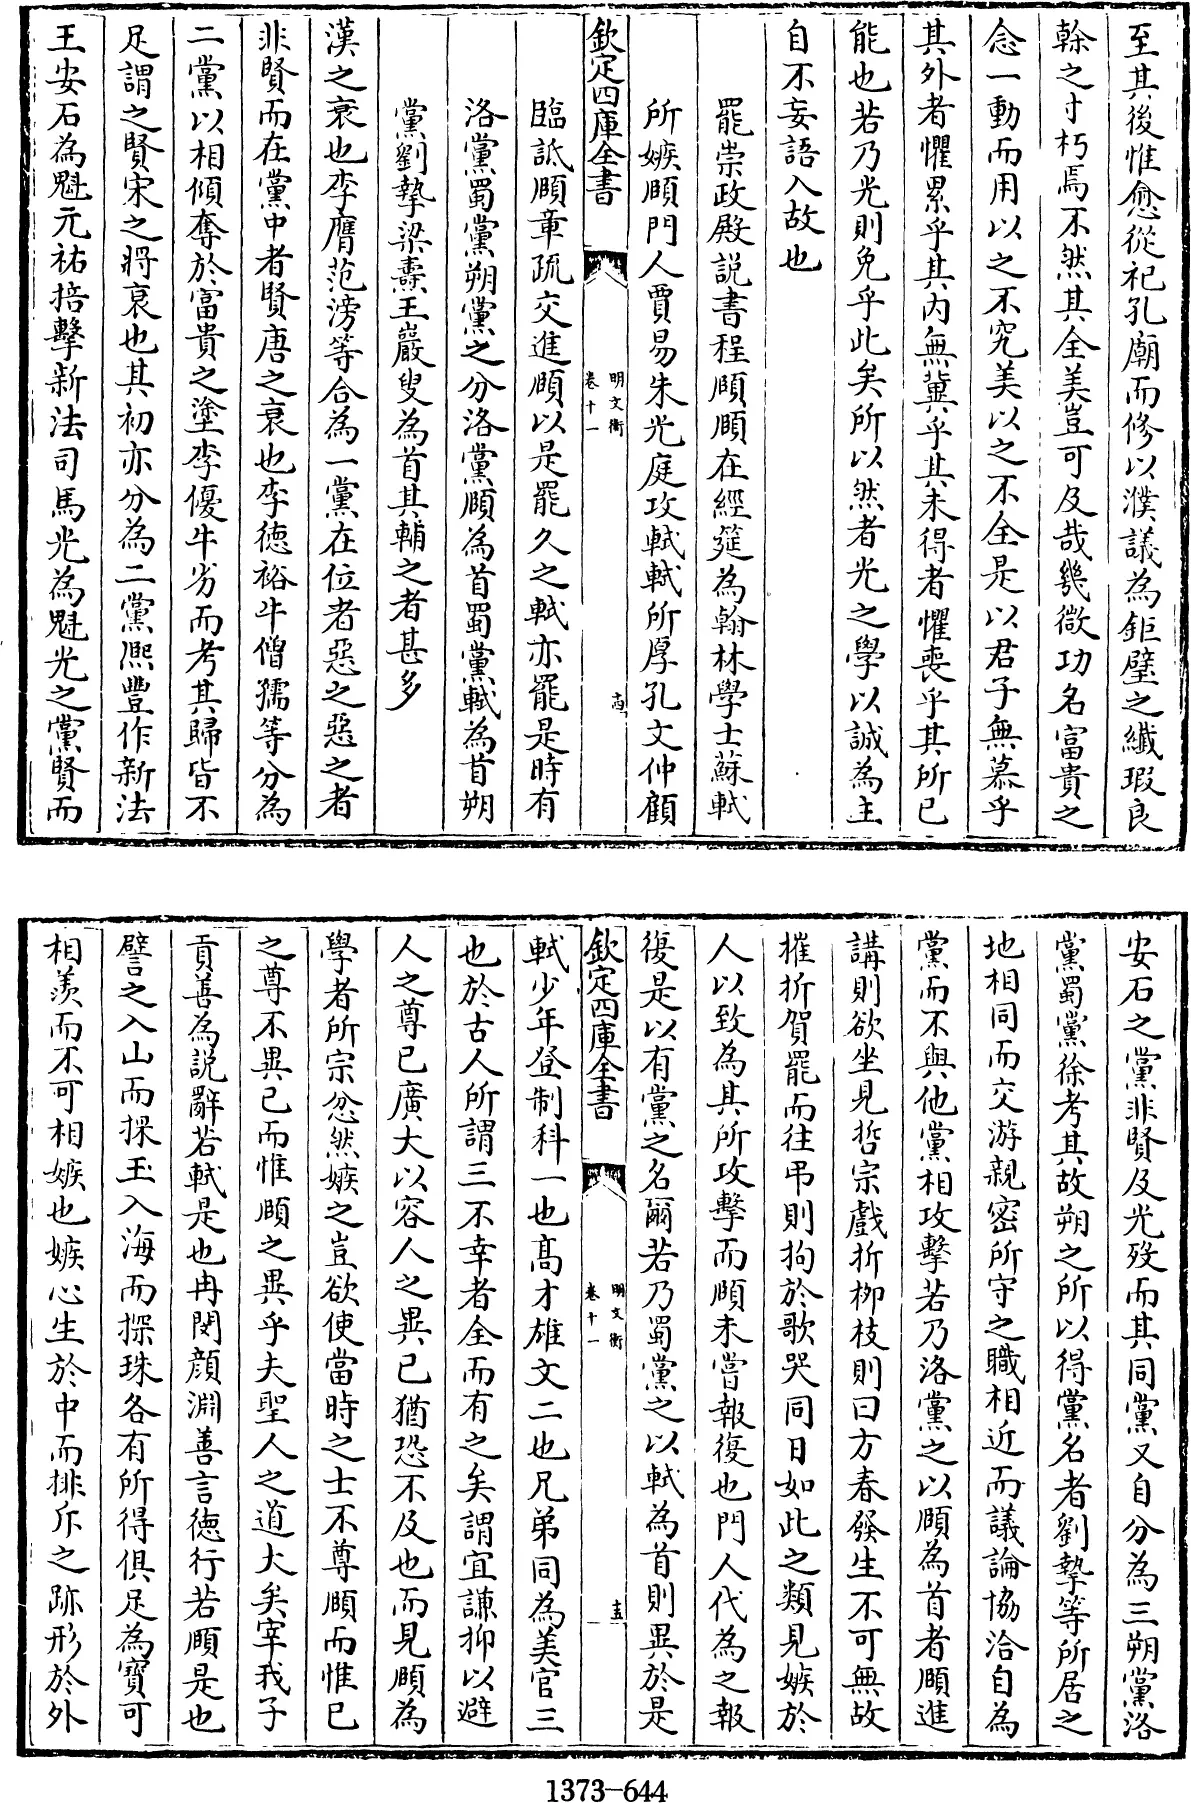 至其後惟愈從祀孔廟而修以濮議為鉅璧之纎瑕良
榦之寸朽焉不然其全美豈可及哉幾微功名富貴之
念一動而用以之不究美以之不全是以君子無慕乎
其外者懼累乎其内無冀乎其未得者懼喪乎其所已
能也若乃光則免乎此矣所以然者光之學以誠為主
自不妄語入故也
罷崇政殿説書程頤頤在經筵為翰林學士蘇軾
所嫉頤門人賈易朱光庭攻軾軾所厚孔文仲顧
欽定四庫全書
明文衡
卷十一
臨詆頤章疏交進頤以是罷久之軾亦罷是時有
洛黨蜀黨朔黨之分洛黨頤為首蜀黨軾為首朔
黨劉摯梁燾王巖叟為首其輔之者甚多
漢之衰也李膺范滂等合為一黨在位者惡之惡之者
非賢而在黨中者賢唐之衰也李徳裕牛僧孺等分為
二黨以相傾奪於富貴之塗李優牛劣而考其歸皆不
足謂之賢宋之將衰也其初亦分為二黨熈豐作新法
王安石為魁元祐掊擊新法司馬光為魁光之黨賢而
安石之黨非賢及光殁而其同黨又自分為三朔黨洛
黨蜀黨徐考其故朔之所以得黨名者劉摯等所居之
地相同而交游親密所守之職相近而議論協洽自為
黨而不與他黨相攻擊若乃洛黨之以頤為首者頤進
講則欲坐見哲宗戲折栁枝則曰方春發生不可無故
摧折賀罷而往弔則拘於歌哭同日如此之類見嫉於
人以致為其所攻擊而頤未嘗報復也門人代為之報
復是以有黨之名爾若乃蜀黨之以軾為首則異於是
欽定四庫全書
明文衡
卷十一
十五
軾少年登制科一也髙才雄文二也兄弟同為美官三
也於古人所謂三不幸者全而有之矣謂宜謙抑以避
人之尊已廣大以容人之異已猶恐不及也而見頤為
學者所宗忿然嫉之豈欲使當時之士不尊頤而惟已
之尊不異已而惟頤之異乎夫聖人之道大矣宰我子
貢善為説辭若軾是也冉閔顔淵善言徳行若頤是也
譬之入山而採玉入海而探珠各有所得俱足為寳可
相羨而不可相嫉也嫉心生於中而排斥之跡形於外
1373-644